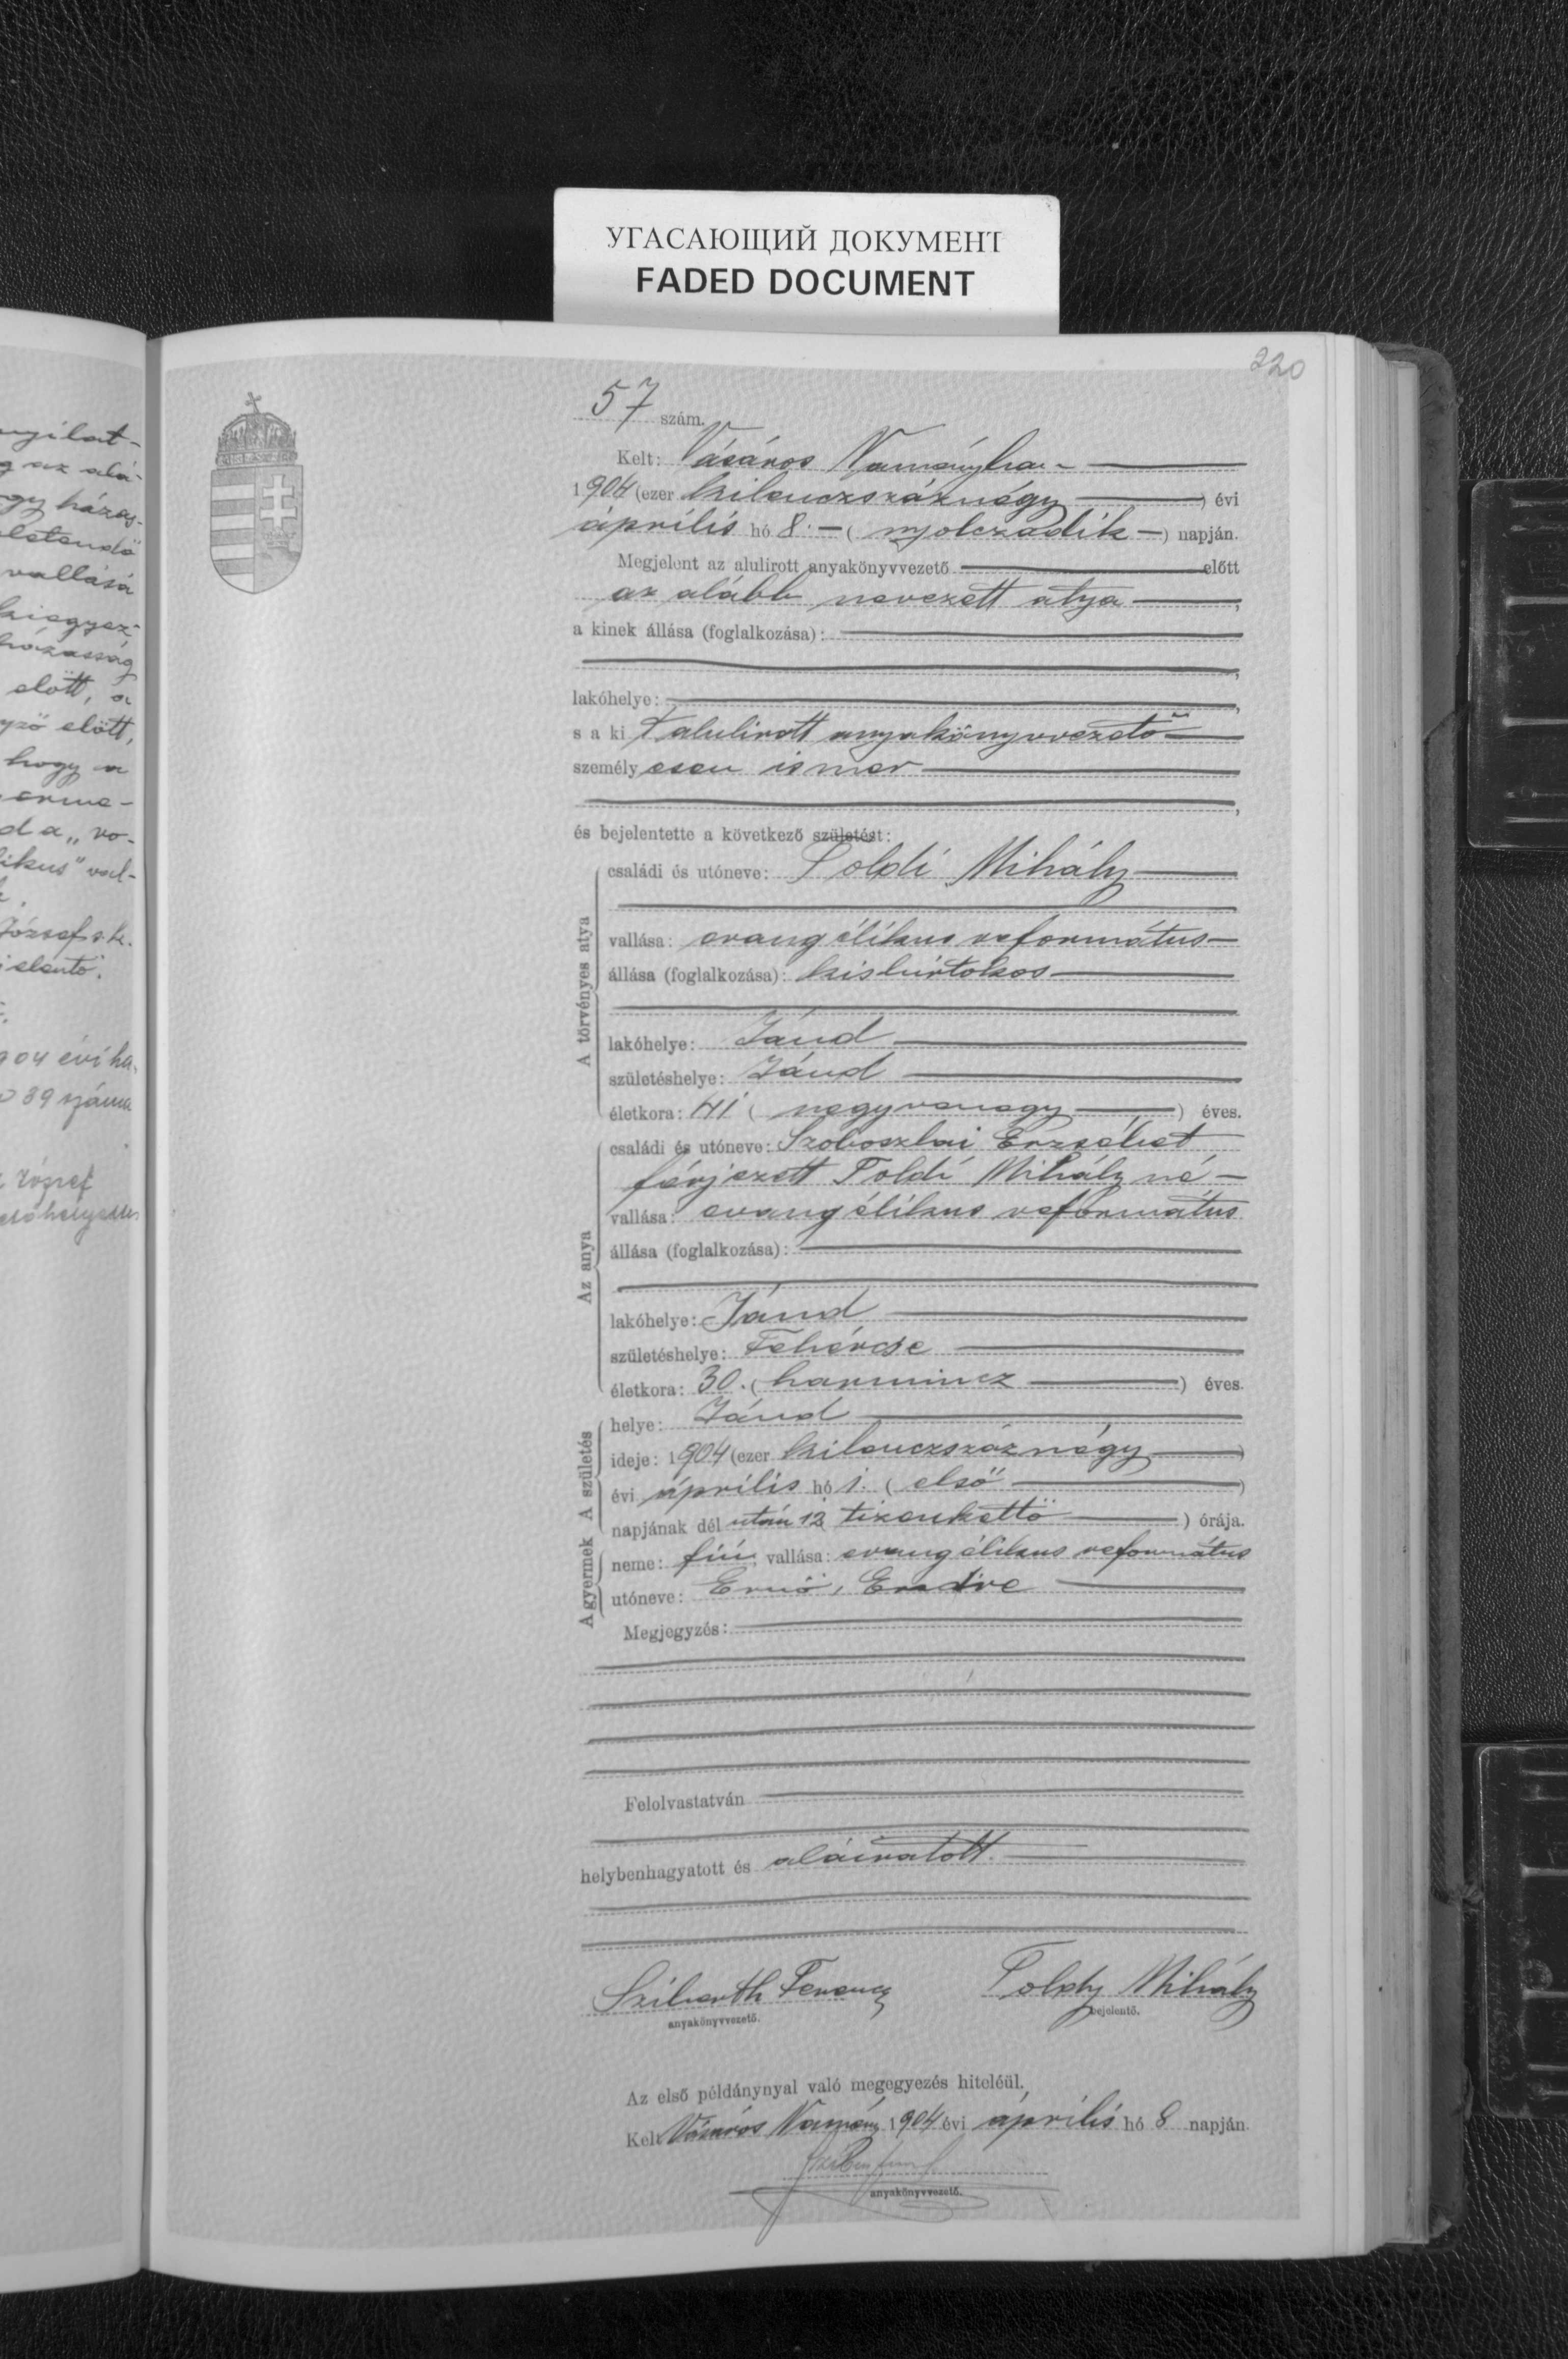 УГАСАЮЩИЙ ДОКУМЕНТ
FADED DOCUMENT
220
57 szám.
Kelt: Vásáros Naményban
1904 (ezer kilenczszáznégy) évi
április hó 8. (nyolczadik) napján.
Megjelent az alulirott anyakönyvvezető előtt
az alább nevezett atya,
a kinek állása (foglalkozása):
lakóhelye:
s a ki alulirott anyakönyvvezető
személyesen ismer
és bejelentette a következő születést:
A törvényes atya
családi és utóneve: Poldi Mihály
vallása: evangélikus református
állása (foglalkozása): kisbirtokos
lakóhelye: Jánd
születéshelye: Jánd
életkora: 41 (negyvenegy) éves.
Az anya
családi és utóneve: Szoboszlai Erzsébet
férjezett Poldi Mihály né
vallása: evangélikus református
állása (foglalkozása):
lakóhelye: Jánd
születéshelye: Fehércse
életkora: 30. (harmincz) éves.
A születés
helye: Jánd
ideje: 1904 (ezer kilenczszáznégy)
évi április hó 1. (első)
napjának dél után 12 tizenkettő) órája.
A gyermek
neme: fiú, vallása: evangélikus református
utóneve: Ernő, Endre
Megjegyzés:
Felolvastatván
helybenhagyatott és aláiratott.
Ferencz Poldy Mihály
anyakönyvvezető. bejelentő.
Az első példánynyal való megegyezés hiteléül.
Kelt Vásáros Namény 1904 évi április hó 8 napján.
anyakönyvvezető.
nyilat-
g az alá-
gy házas-
vallásá
kiegyez-
házasság
előtt, a
előtt,
hogy a
da „ro-
ikus" val-
József s.k.
904 évi
39 száma
József